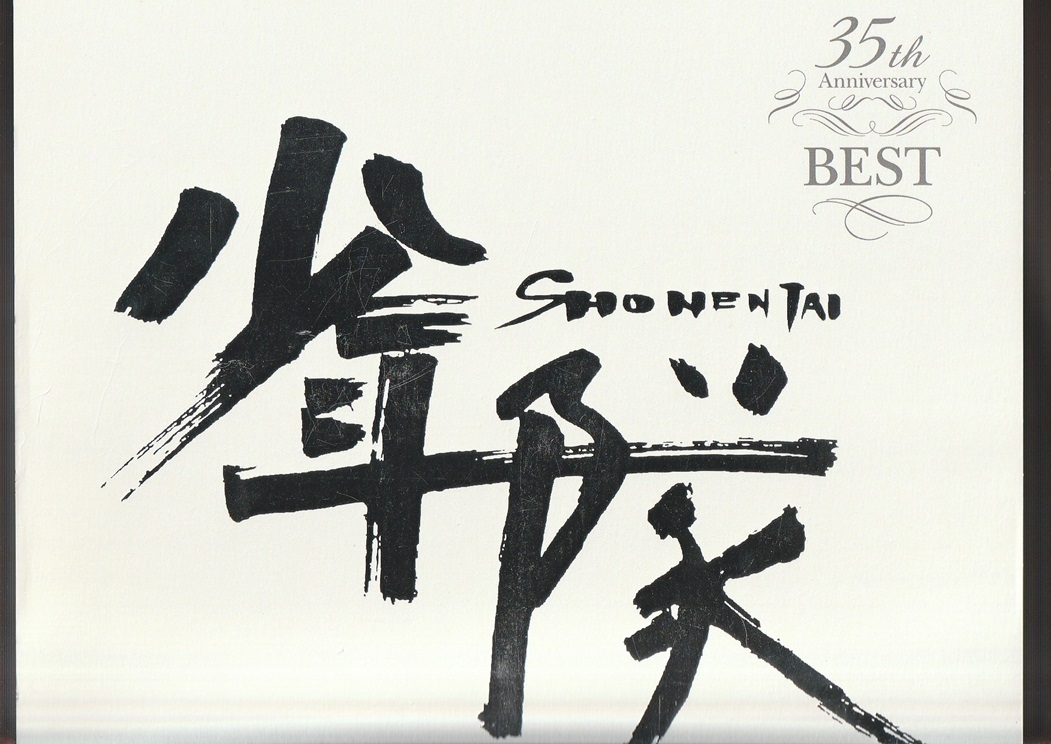 35th
Anniversary
BEST
少年隊
SHONENTAI